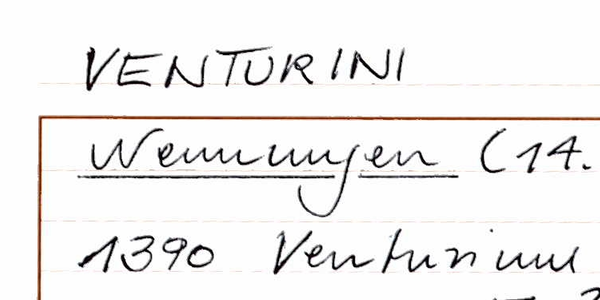 VENTURINI
Wennungen (14.
1390 Venturinus